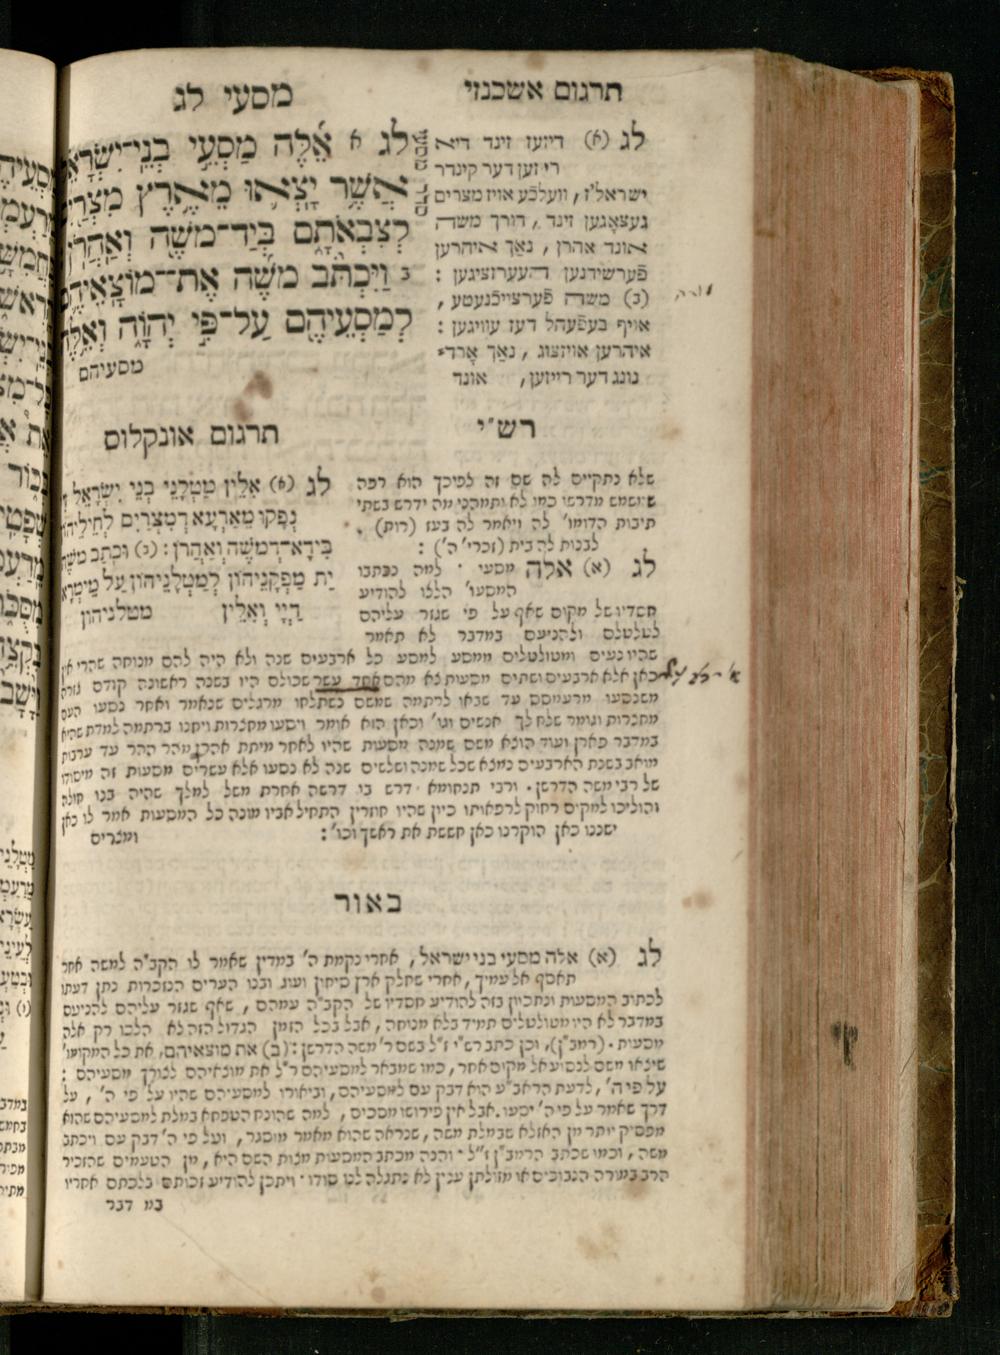 תרגום אשכנזי
מסעי לג
לג א אֵלֶּה מַסְעֵי בְנֵי־יִשְׂרָאֵל
אֲשֶׁר יָצְאוּ מֵאֶרֶץ מִצְרַיִם
לְצִבְאֹתָם בְּיַד־מֹשֶׁה וְאַהֲרֹן׃
ב וַיִּכְתֹּב מֹשֶׁה אֶת־מוֹצָאֵיהֶם
לְמַסְעֵיהֶם עַל־פִּי יְהוָה וְאֵלֶּה
מסעיהם
לג (א) דיזעז זינד דיא
רייזען דער קינדר
ישראל'ז, וועלכע אויז מצרים
געצאגען זינד, דורך משה
אונד אהרן, נאך איהרען
פערשידנען העערזציגען :
(ב) משה פערצייכנעטע,
אויף בעפעהל דעז עוויגען :
איהרען אויזצוג, נאך ארד־
נונג דער רייזען, אונד
רש"י
שלא נתקיים לה שם זה לפיכך הוא רפה
שישמש מדרשו כמו לא ותמהני מה ידרש בשתי
תיבות הדומו' לה ויאמר לה בעז (רות)
לבנות לה בית (זכרי' ה') :
לג (א) אלה מסעי · למה נכתבו
המסעו' הללו להודיע
חסדיו של מקום שאף על פי שגזר עליהם
לטלטלם ולהניעם במדבר לא תאמר
שהיו נעים ומטולטלים ממסע למסע כל ארבעים שנה ולא היה להם מנוחה שהרי אין
כאן אלא ארבעים ושתים מסעות צא מהם אחד עשר שכולם היו בשנה ראשונה קודם גזרה
משנסעו מרעמסם עד שבאו לרתמה שמשם נשתלחו מרגלים שנאמר ואחר נסעו העם
מחצרות וגומר שלח לך אנשים וגו' וכאן הוא אומר ויסעו מחצרות ויחנו ברתמה למדת שהיא
במדבר פארן ועוד הוצא משם שמנה מסעות שהיו לאחר מיתת אהרן מהר ההר עד ערבות
מואב בשנת הארבעים נמצא שכל שמנה ושלשים שנה לא נסעו אלא עשרים מסעות זה מיסודו
של רבי משה הדרשן · ורבי תנחומא דרש בו דרשה אחרת משל למלך שהיה בנו חולה
והוליכו למקום רחוק לרפאותו כיון שהיו חוזרין התחיל אביו מונה כל המסעות אמר לו כאן
ישננו כאן הוקרנו כאן חששת את ראשך וכו' :
ומצרים
תרגום אונקלוס
לג (א) אִלֵּין מַטְלָנֵי בְנֵי יִשְׂרָאֵל דִּ
נְפָקוּ מֵאַרְעָא דְמִצְרַיִם לְחֵילֵיהוֹן
בִּידָא־דְמֹשֶׁה וְאַהֲרֹן׃ (ב) וּכְתַב מֹשֶׁה
יַת מַפְּקָנֵיהוֹן לְמַטְלָנֵיהוֹן עַל מֵימְרָא
דַיְיָ וְאִלֵּין מטלניהון
באור
לג (א) אלה מסעי בני ישראל, אחרי נקמת ה' במדין שאמר לו הקב"ה למשה אחר
תאסף אל עמיך, אחרי שחלק ארץ סיחון ועוג ובנו הערים הנזכרות נתן דעתו
לכתוב המסעות ונתכוין בזה להודיע חסדיו של הקב"ה עמהם, שאף שגזר עליהם להניעם
במדבר לא היו מטולטלים תמיד בלא מנוחה, אבל בכל הזמן הגדול הזה לא הלכו רק אלה
מסעות · (רמב"ן), וכן כתב רש"י ז"ל בשם ר' משה הדרשן : (ב) את מוצאיהם, את כל המקומו'
שיצאו משם לנסוע אל מקום אחר, כמו שמבאר למסעיהם ר"ל את מוצאיהם לצורך מסעיהם :
על פי ה', לדעת הראב"ע הוא דבק עם למסעיהם, וביאורו למסעיהם שהיו על פי ה', על
דרך שאמר על פי ה' יסעו. אבל אין פירושו מסכים, למה שהונח הטפחא במלת למסעיהם שהוא
מפסיק יותר מן האזלא שבמלת משה, שנראה שהוא מאמר מוסגר, ועל פי ה' דבק עם ויכתב
משה, וכמו שכתב הרמב"ן ז"ל · והנה מכתב המסעות מצות השם היא, מן הטעמים שהזכיר
הרב במורה הנבוכים או מזולתן ענין לא נתגלה לנו סודו · ויתכן להודיע זכותם בלכתם אחריו
במדבר